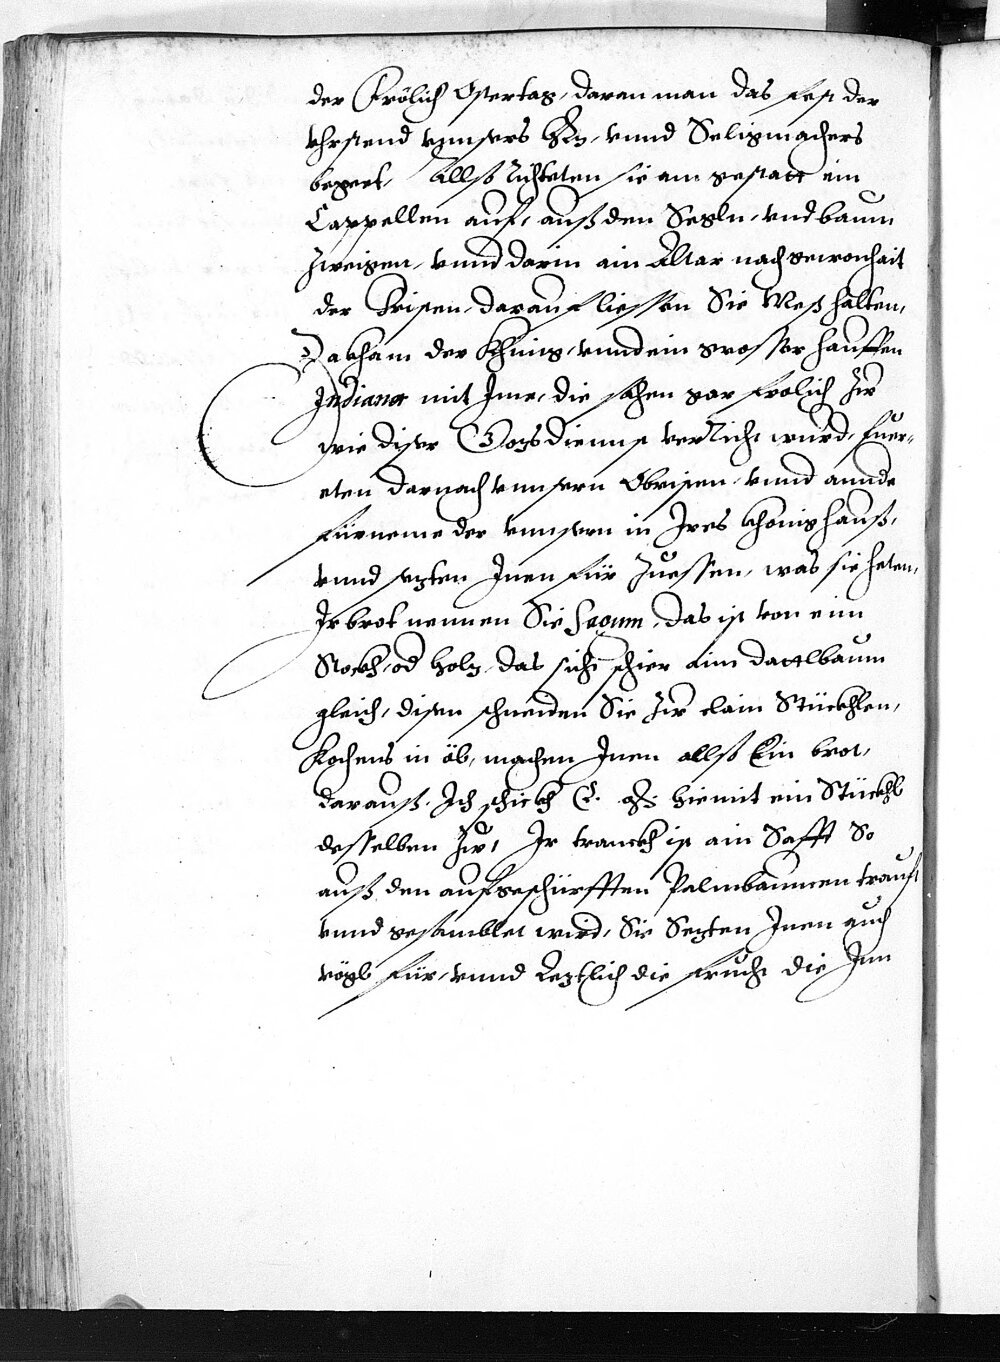 der Frölich Ostertag, daran man das fest der
Vhrstend vnnsers Hrn, vnnd Seligmachers
begeet, Allß Richteten sie am gestatt ein
Cappellen auf, auß den Segln, vnd baum
Zweigen, vnnd darin ain Altar nach gewonhait
der Cristen, darauf liessen Sie Meß halten,
Da kham der Khunig, vnnd ein grosser hauffen
Indianer mit Ime, die sahen gar frolich Zu
wie diser Gotzdiennst verricht wurd, fuer¬
eten darnach vnnsern Obristen, vnnd annde
fürneme der vnnsern in Ires Khönigs hauß,
vnnd setzten Inen für Zuessen, was sie heten,
Ir brot nennen Sie Sagum, das ist von eim
Stockh, od holtz, das sicht schier eim dattlbaum
gleich, disen schneiden Sie Zu clain Stückhlen,
Kochens in öl, machen Inen allß Ein brot,
darauß. Ich schickh E. G. hiemit ein Stückhl
desselben Zu, Ir tranckh ist ain Safft So
auß den aufgeschürfften Palmbaumen trauft
vnnd gesamblet wird, Sie Setzten Inen auch
vögl für, vnnd Letztlich die frucht die Inn